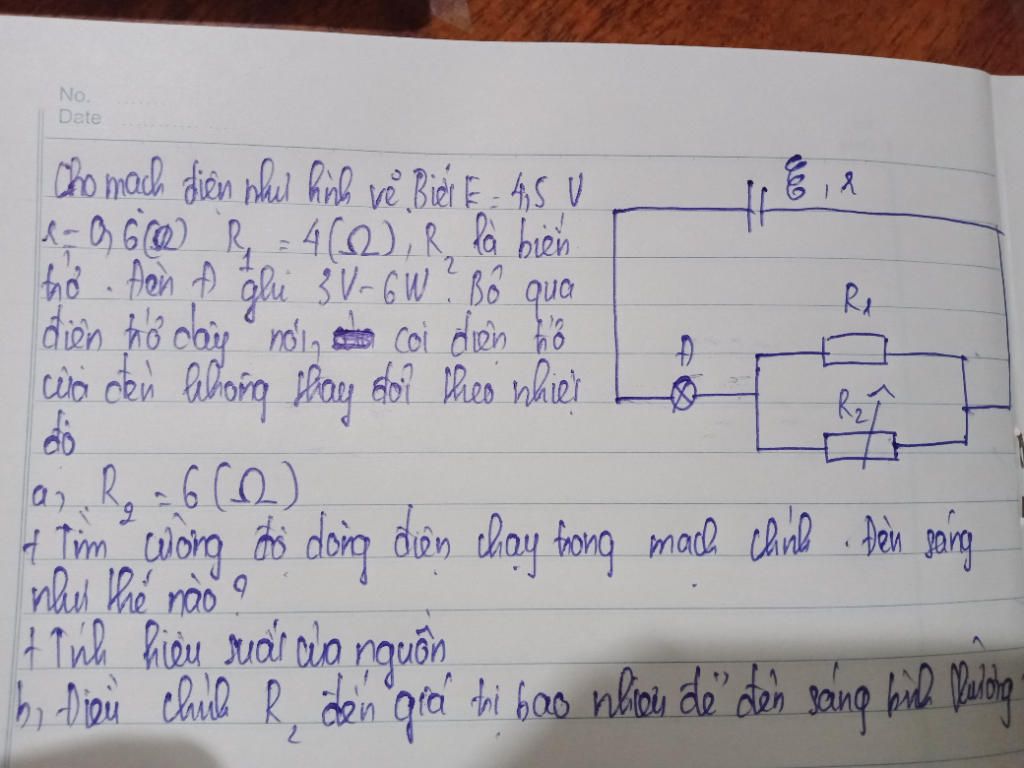 No.
Date
Cho mạch điện như hình vẽ. Biết E = 4,5 V
r = 0,6 (Ω) R1 = 4 (Ω), R2 là biến
trở. Đèn Đ ghi 3V - 6W. Bỏ qua
điện trở dây nối, coi điện trở
của đèn không thay đổi theo nhiệt
độ
a, R2 = 6 (Ω)
+ Tìm cường độ dòng điện chạy trong mạch chính. Đèn sáng
như thế nào?
+ Tính hiệu suất của nguồn
b, Điều chỉnh R2 đến giá trị bao nhiêu để đèn sáng bình thường
E, r
R1
Đ
R2